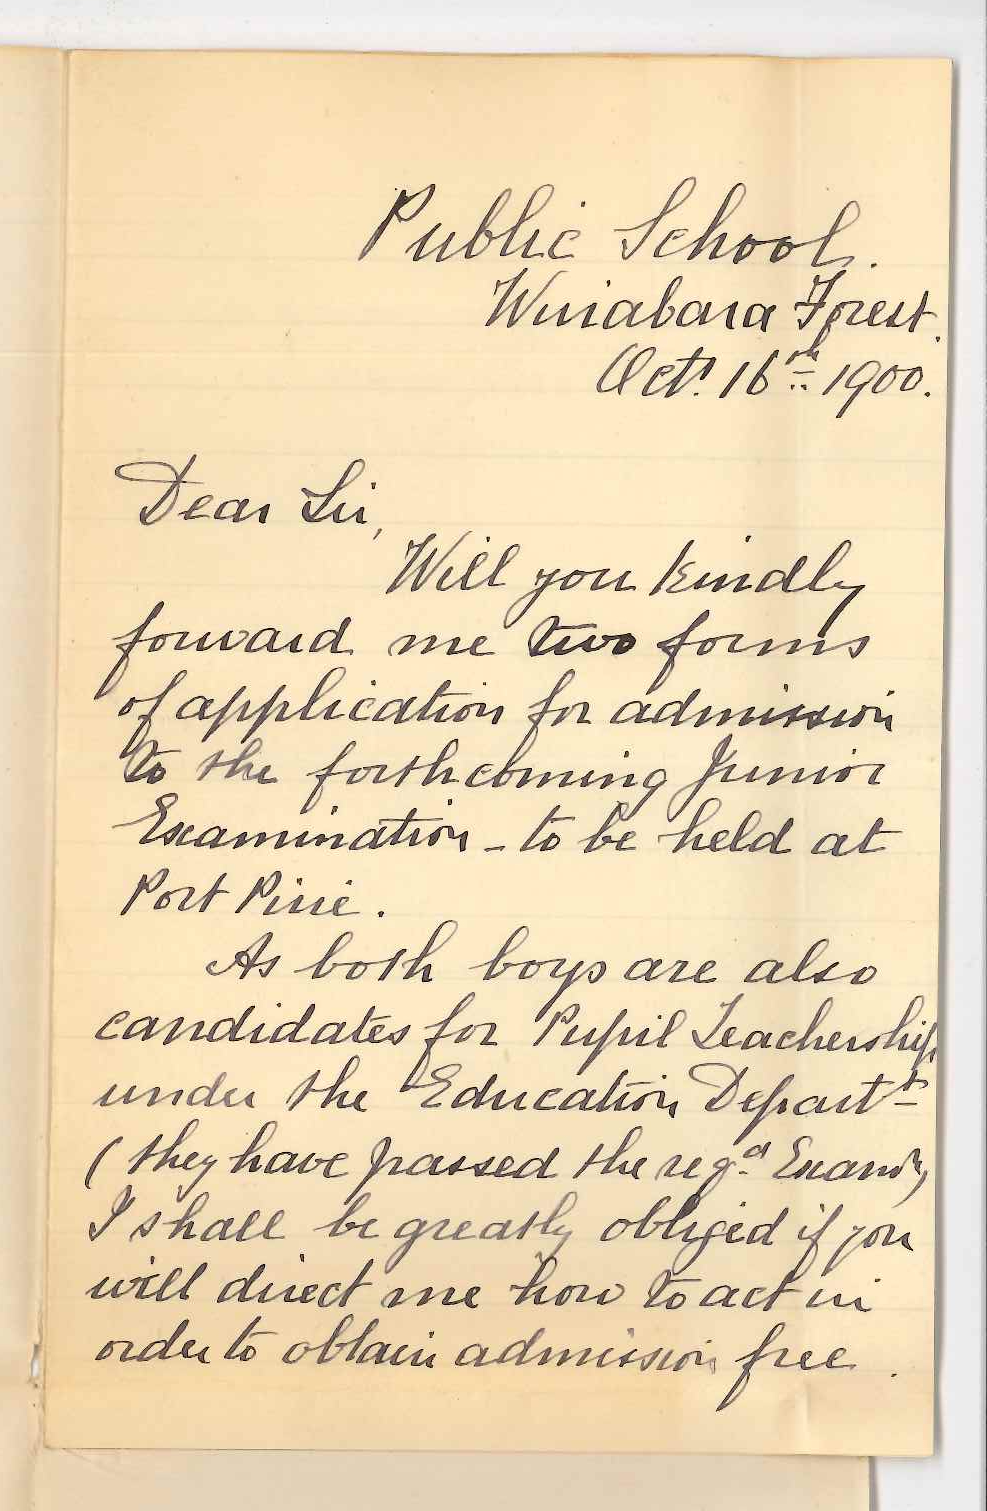 Public School.
Wirrabara Forest.
Octr 16th 1900.
Dear Sir,
Will you kindly
forward me two forms
of application for admission
to the forthcoming Junior
Examination - to be held at
Port Pirie.
As both boys are also
candidates for Pupil Teachership
under the Education Departt
(they have passed the reqd Examn)
I shall be greatly obliged if you
will direct me how to act in
order to obtain admission free.